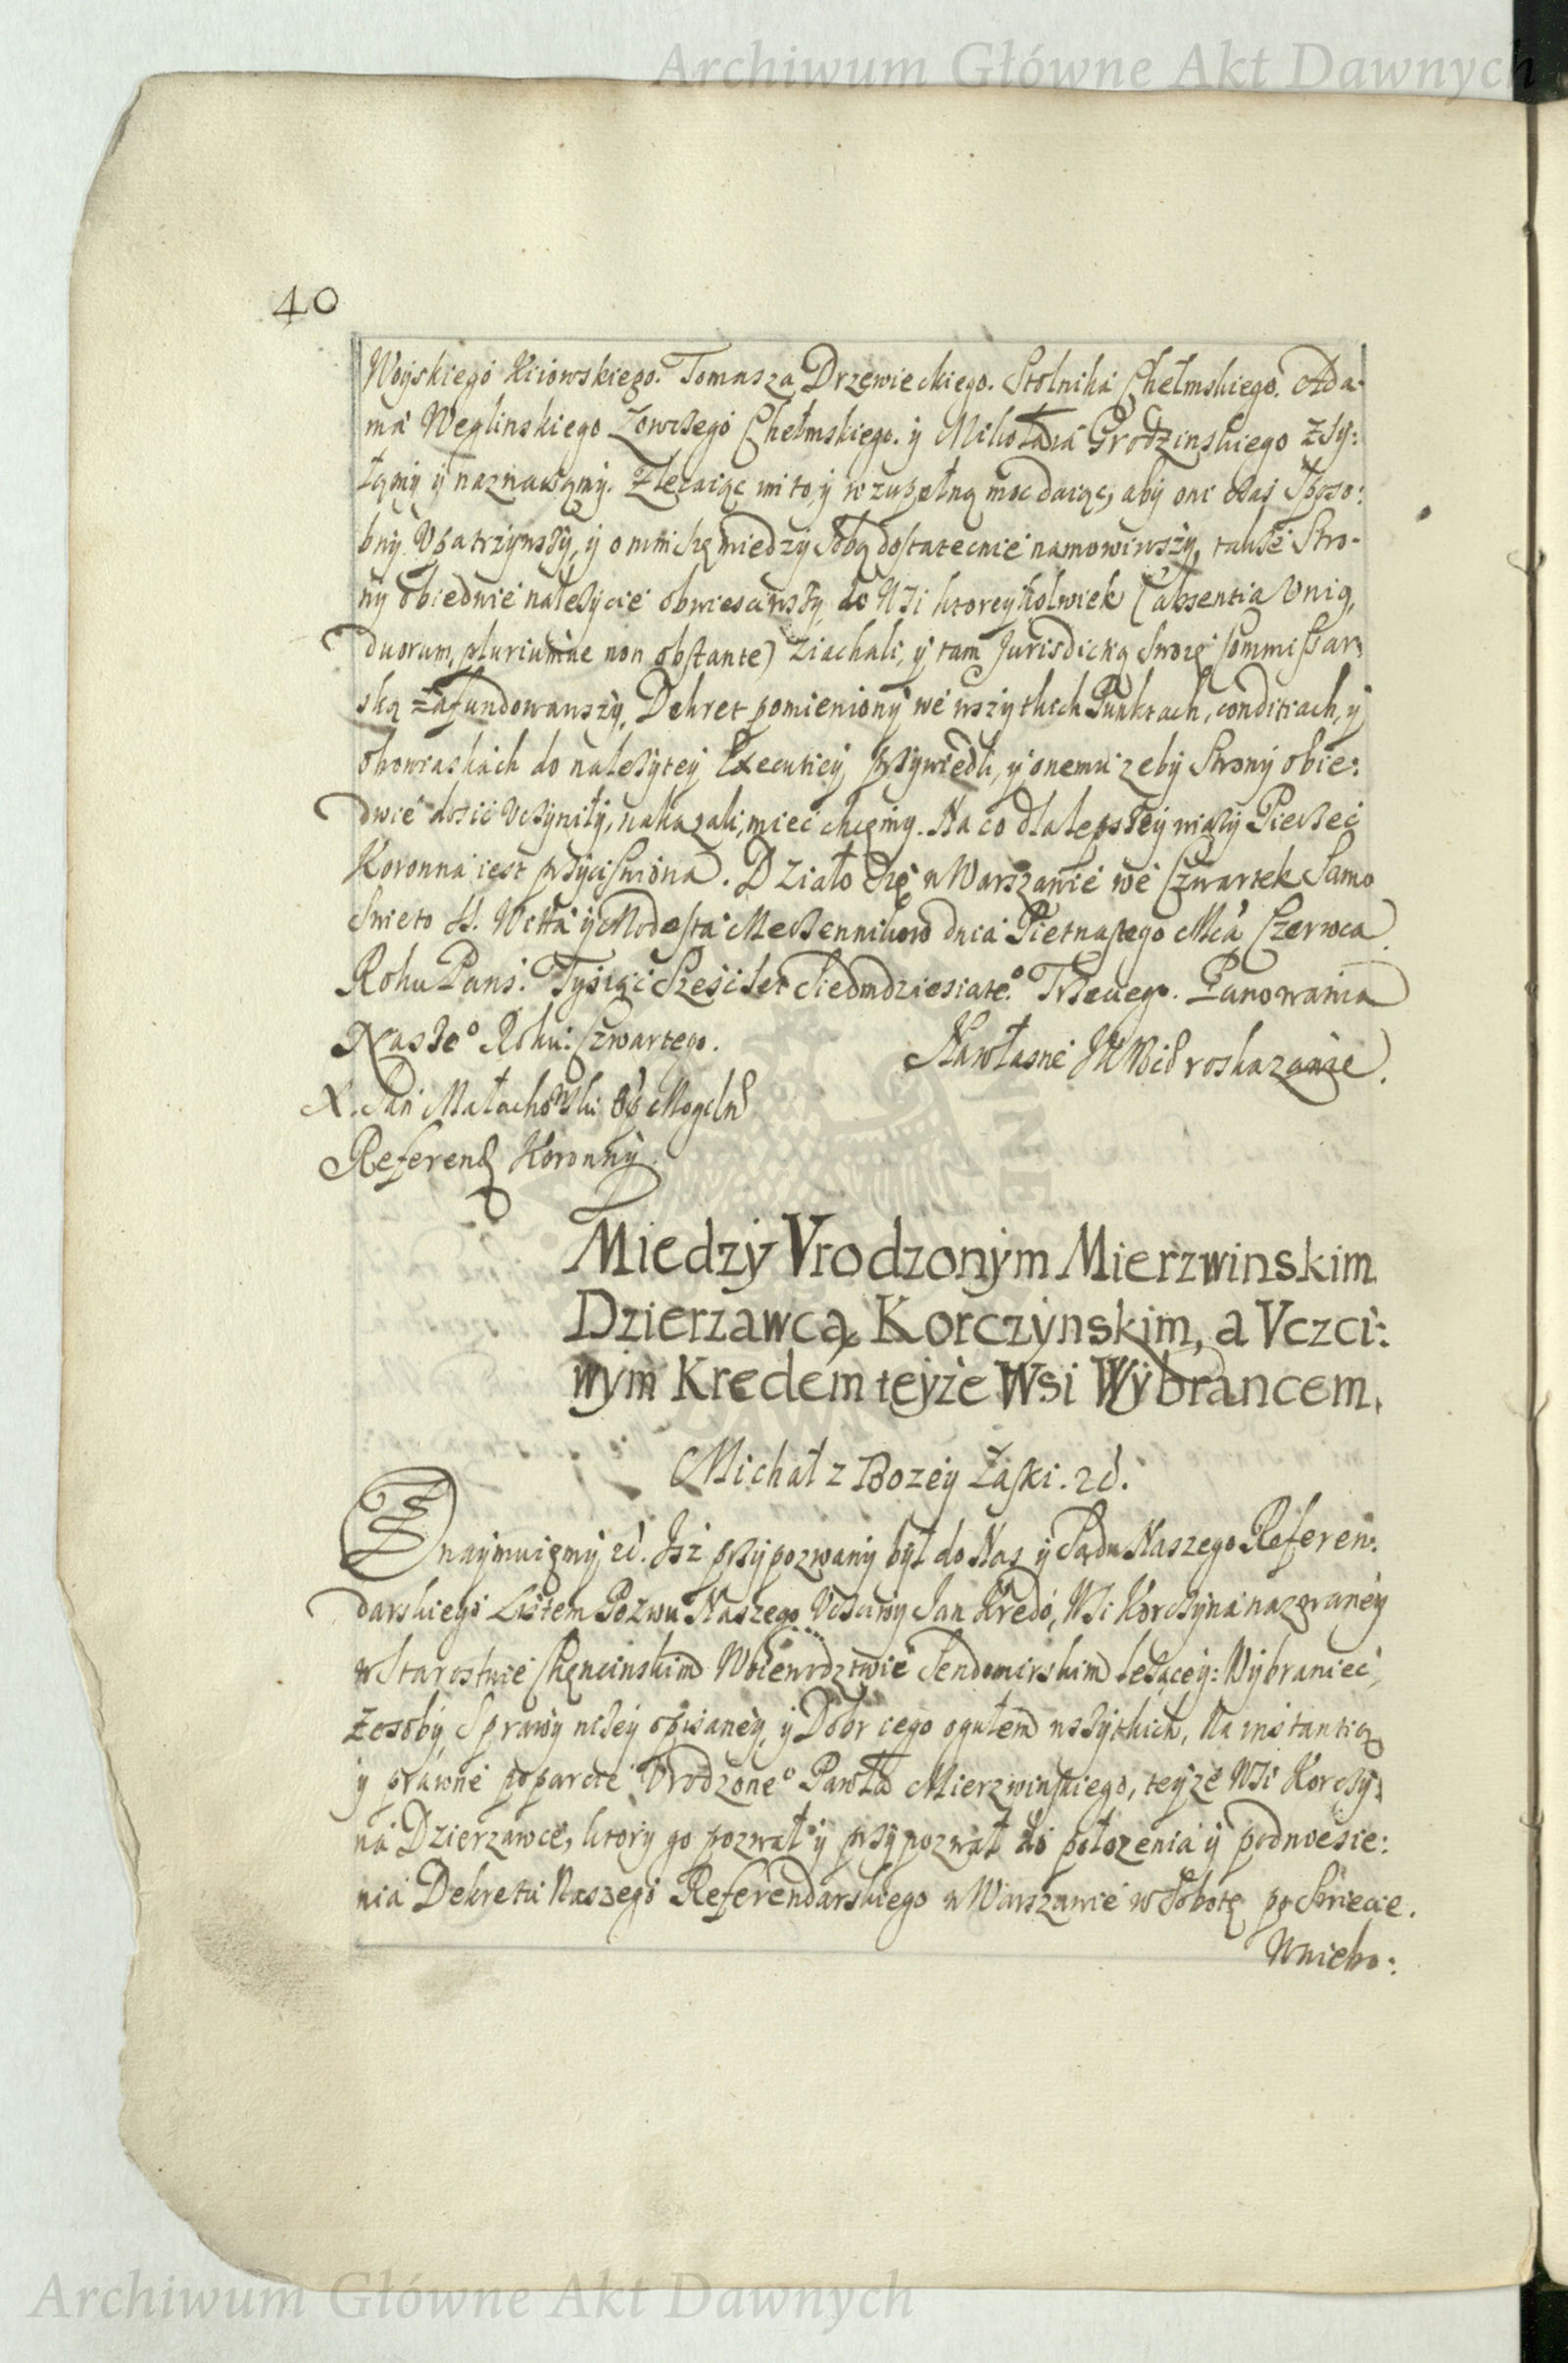 Archiwum Główne Akt Dawnych
40
Woyskiego Kiiowskiego. Tomasza Drzewieckiego. Stolnika Chełmskiego. Ada-
ma Węglinskiego Łowczego Chełmskiego. y Mikołaia Grodzinskiego zsy:
łamy y naznaczamy. Zlecaiąc im to, y w zupełną moc daiąc, aby oni czas sposo:
bny Vpatrzywszy, y o nim się miedzy sobą dostatecnie namowiwszy, także Stro-
ny obiedwie należycie obwiesciwszy do Wsi ktoreykolwiek (absentia Vnig,
duorum, pluriumue non obstante) ziachali, y tam Jurisdictią Swoię Commissar,
ską zafundowawszy, Dekret pomieniony we wszytkich Punktach, conditiach, y
obowiaskach do należytey Executiey przywiedli, y onemu zeby Strony obie:
dwie dosić Vczyniły, nakazali, mieć chcemy. Na co dla lepszey wiary Pieczeć
Koronna iest przyciśniona. Działo się w Warszawie we Czwartek Samo
Swieto SS. Witta y Modesta Męczennikow dnia Pietnastego Mca Czerwca
Roku Pans: Tysiąc Sześćset Siedmdziesiateº Trzeciego. Panowania
Naszeº Roku: Czwartego.
Nawłasne JKMści roskazanie.
X. Jan Małachowski Op Mogeln
Referend Koronny
Miedzy Vrodzonym Mierzwinskim
Dzierzawcą Korczynskim, a Vczci:
wym Kredem teyże Wsi Wybrancem.
Michał z Bozey Łaski. 2c.
Znaymuiemy 2c. Isz przypozwany był do Nas y Sądu Naszego Referen:
darskiego Listem Pozwu Naszego Vczciwy Jan Kredo, Wsi Korczyna nazwaney
w Starostwie Chęncinskim Woiewodztwie Sendomirskim leżącey: Wybraniec,
z osoby Sprawy niżey opisaney, y Dobr iego ogułem wszytkich, Na instantią
y prawne poparcie Vrodzoneº Pawła Mierzwinskiego, teyże Wsi Korczy:
na Dzierzawce, ktory go pozwał y przypozwał do położenia y podniesie:
nia Dekretu Naszego Referendarskiego w Warszawie w Sobotę po Swiecie.
Wniebo:
Archiwum Główne Akt Dawnych